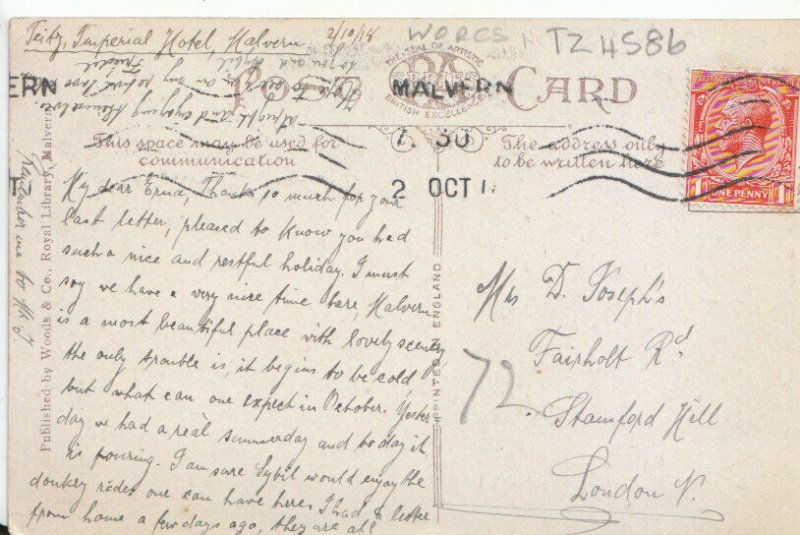 Teitz, Imperial Hotel, Malvern 2/10/18
WORCS
TZ 4586
POST CARD
THE SEAL OF ARTISTIC
BRITISH EXCELLENCE
MALVERN
2 OCT
ONE PENNY
This space may be used for
communication
The address only
to be written here
My dear Erna, Thanks so much for your
last letter, pleased to know you had
such a nice and restful holiday. I must
say we have a very nice time here, Malvern
is a most beautiful place with lovely scenery
the only trouble is, it begins to be cold,
but what can one expect in October. Yester
day we had a real summerday and to day it
is pouring. I am sure Sybil would enjoy the
donkey rides one can have here. I had a letter
from home a few days ago, they are all
alright and enjoying themselves.
Remember me to Mr J
Published by Woods & Co., Royal Library, Malvern
PRINTED IN ENGLAND
Mrs D. Joseph's
72
Fairholt Rd
Stamford Hill
London N.